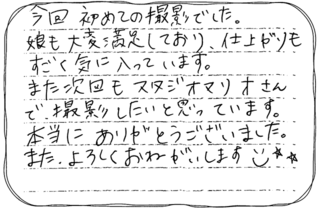 今回 初めての撮影でした。
娘も大変満足しており、仕上がりも
すごく気に入っています。
また次回もスタジオマリオさん
で撮影したいと思っています。
本当に ありがとうございました。
また、よろしくおねがいします